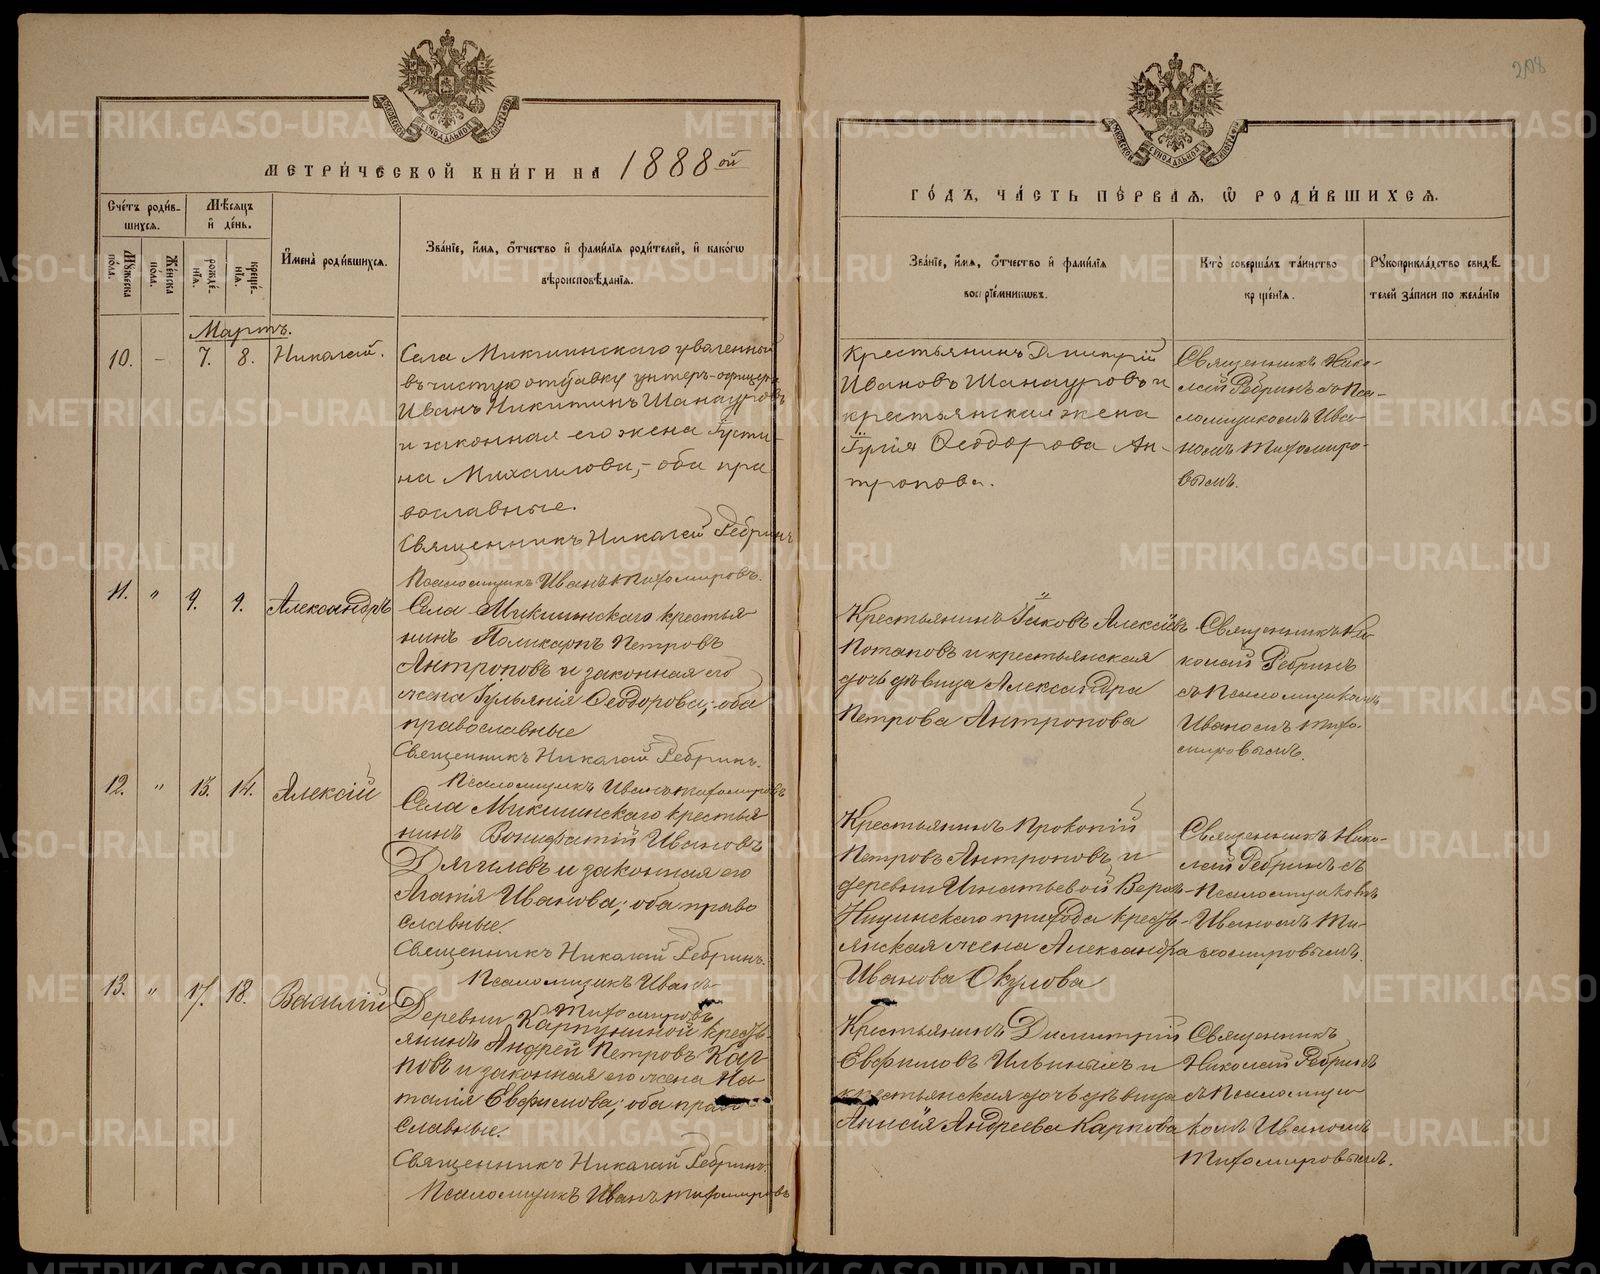 208
МЕТРИ́ЧЕСКОЙ КНИ́ГИ НА 1888ой
ГО́ДЪ, ЧА́СТЬ ПЕ́РВАЯ, Ѿ РОДИ́ВШИХСЯ.
Сче́тъ роди́в-
шихся.
Мѣ́сяцъ
и҆ де́нь.
Мꙋжеска
по́ла.
Же́нска
по́ла.
рожде́-
нїя.
креще́-
нїя.
И҆мена̀ роди́вшихся.
Зва́нїе, и҆́мя, ѻ҆́тчество и҆ фами́лїя роди́телей, и҆ како́гѡ
вѣроисповѣ́данїя.
Зва́нїе, и҆́мя, ѻ҆́тчество и҆ фами́лїя
воспрїе́мникѡвъ.
Кто̀ соверша́лъ та́инство
креще́нїя.
Рꙋкоприкла́дство свидѣ́-
телей за́писи по жела́нїю
Мартъ.
10. - 7. 8. Николай.
Села Микшинскаго уволенный
въ чистую отставку унтеръ-офицеръ
Иванъ Никитинъ Шанауровъ
и законная его жена Густи-
на Михаилова, - оба пра
вославные.
Священникъ Николай Ребринъ
Псаломщикъ Иванъ Тихомировъ.
Крестьянинъ Дмитрій
Ивановъ Шанауровъ и
крестьянская жена
Феодорова Ан-
тропова.
Священникъ Нико-
лай Ребринъ съ Пса-
ломщикомъ Ива-
номъ Тихомиро-
вымъ.
11. " 9. 9. Александръ
Села Микшинскаго крестья
нинъ Поликарпъ Петровъ
Антроповъ и законная его
жена Гульянія Феодорова; оба
православные
Священникъ Николай Ребринъ.
Псаломщикъ Иванъ Тихомировъ
Крестьянинъ Іаковъ Алексіевъ
Потаповъ и крестьянская
дочь дѣвица Александра
Петрова Антропова
Священникъ Ни
колай Ребринъ
съ Псаломщикомъ
Иваномъ Тихо-
мировымъ.
12. " 13. 14. Алексій
Села Микшинскаго крестья
нинъ Вонифатій Ивановъ
Дягилевъ и законная его
Агапія Иванова; оба право
славные.
Священникъ Николай Ребринъ.
Псаломщикъ Иванъ
Тихомировъ
Крестьянинъ Прокопій
Петровъ Антроповъ и
деревни Игнатьевой Верх-
Ницинскаго прихода кресть-
янская жена Александра
Иванова Окулова
Священникъ Нико-
лай Ребринъ съ
Псаломщикомъ
Иваномъ Ти-
хомировымъ.
13. " 17. 18. Василій
Деревни Карпуниной кресть-
янинъ Андрей Петровъ Кар-
повъ и законная его жена На-
талія Евфимова; оба право
славные.
Священникъ Николай Ребринъ.
Псаломщикъ Иванъ Тихомировъ
Крестьянинъ Димитрій
Евфимовъ Ильиныхъ и
крестьянская дочь дѣвица
Анисія Андреева Карпова
Священникъ
Николай Ребринъ
съ Псаломщи-
комъ Иваномъ
Тихомировымъ.
METRIKI.GASO-URAL.RU